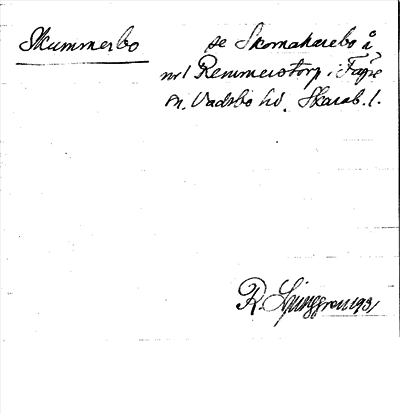 Skummerbo
se Skomakarebo å
nr 1 Remmerstorp i Fägre
sn. Vadsbo hd. Skarab. l.
R. Ljunggren 1931